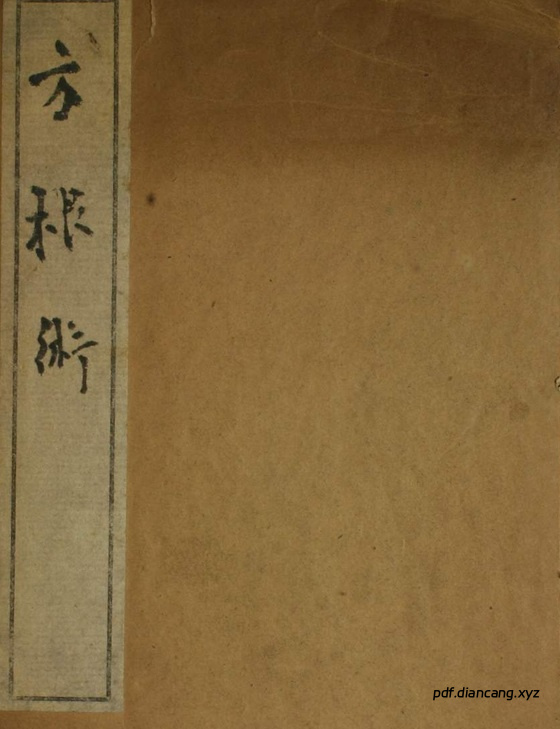 方根術
pdf.diancang.xyz